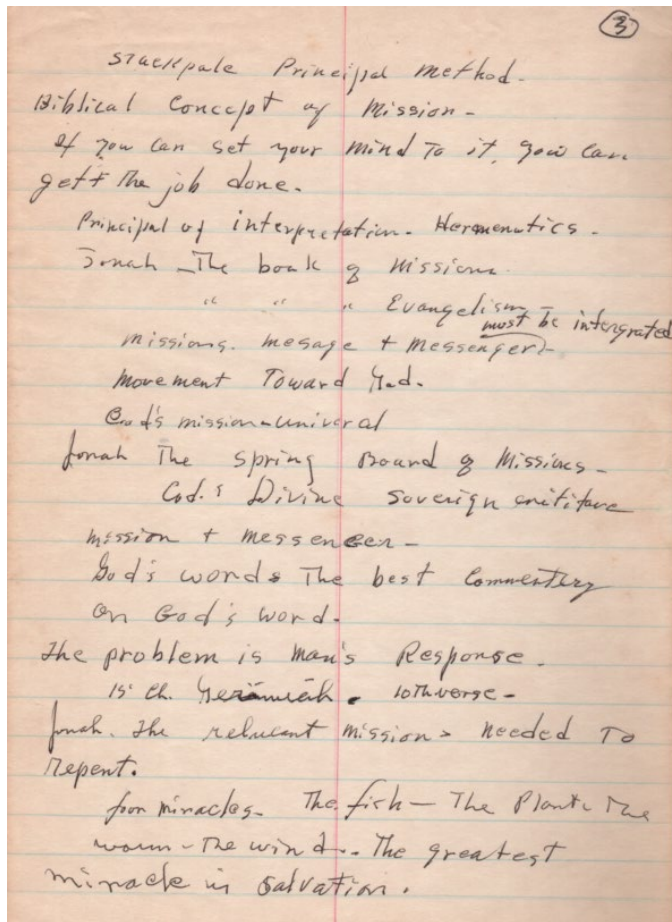 3
stackpale Principal method-
Biblical Concept of Mission-
If you can set your mind To it, you can
gett The job done.
Principal of interpretation- Hermenutics-
Jonah-The book of missions
" " " Evangelism-
must be intergrated
missions. mesage + messenger-
movement Toward God.
God's mission-univeral
Jonah The spring Board of Missions-
God's Divine soverign
mission + messenger-
God's words The best Commentery
on God's word.
The problem is man's Response.
Ch. Jeremiah. 10thverse-
Jonah. The relucant mission- needed To
repent.
four miracles- The fish- The Plant- The
worm-The wind-. The greatest
miracle is salvation.